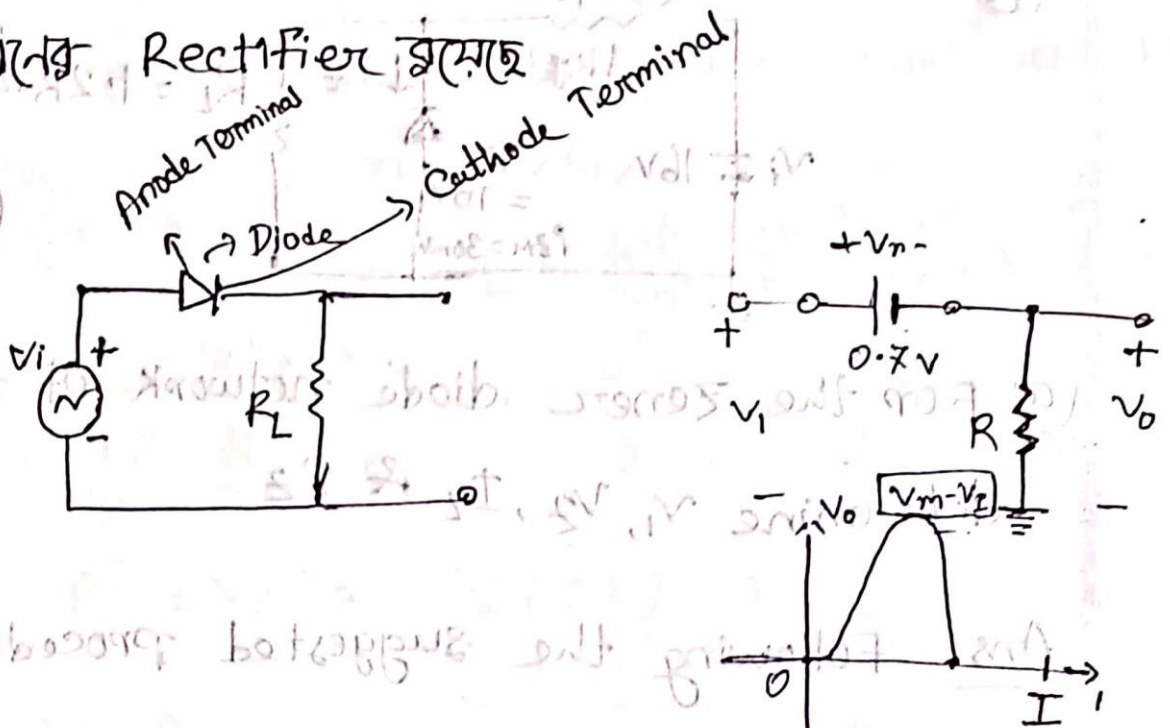 Rectifier রয়েছে
Anode Terminal
Cathode Terminal
Diode
Vi
+
-
R_L
+Vn-
0.7V
+
+
V₁
R
V₀
-
-
Vm-V_I
V₀
0
I